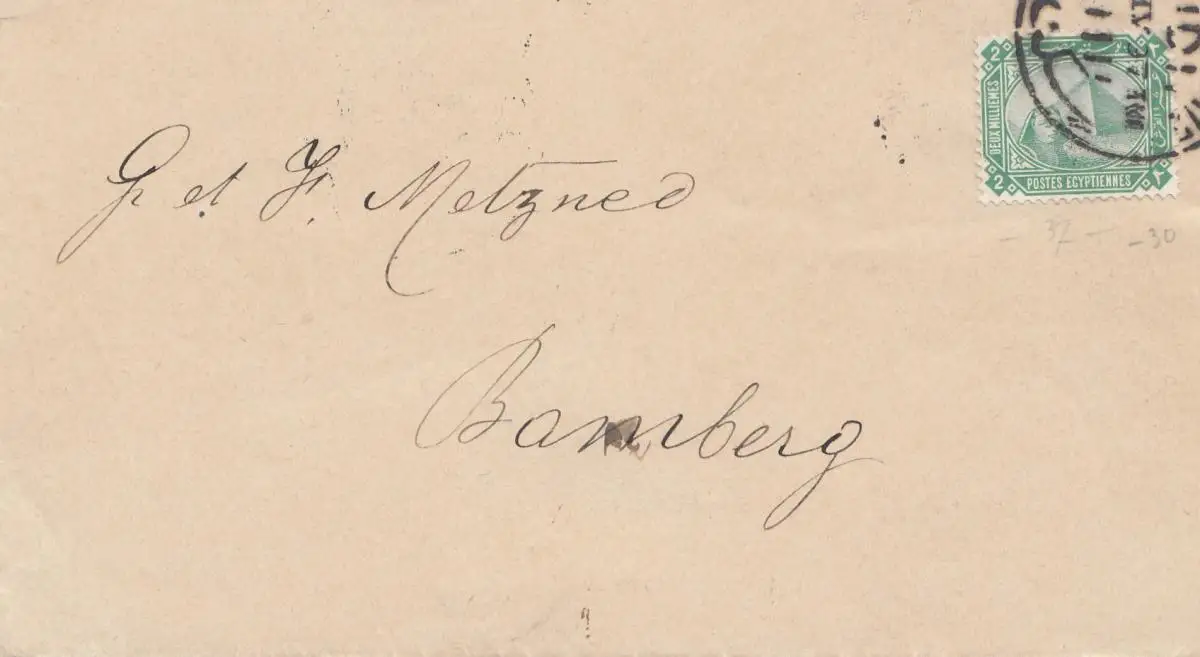 2 ٢
DEUX MILLIEMES
2 POSTES EGYPTIENNES ٢
- 37 - - 30
G. et F. Metzner
Bamberg